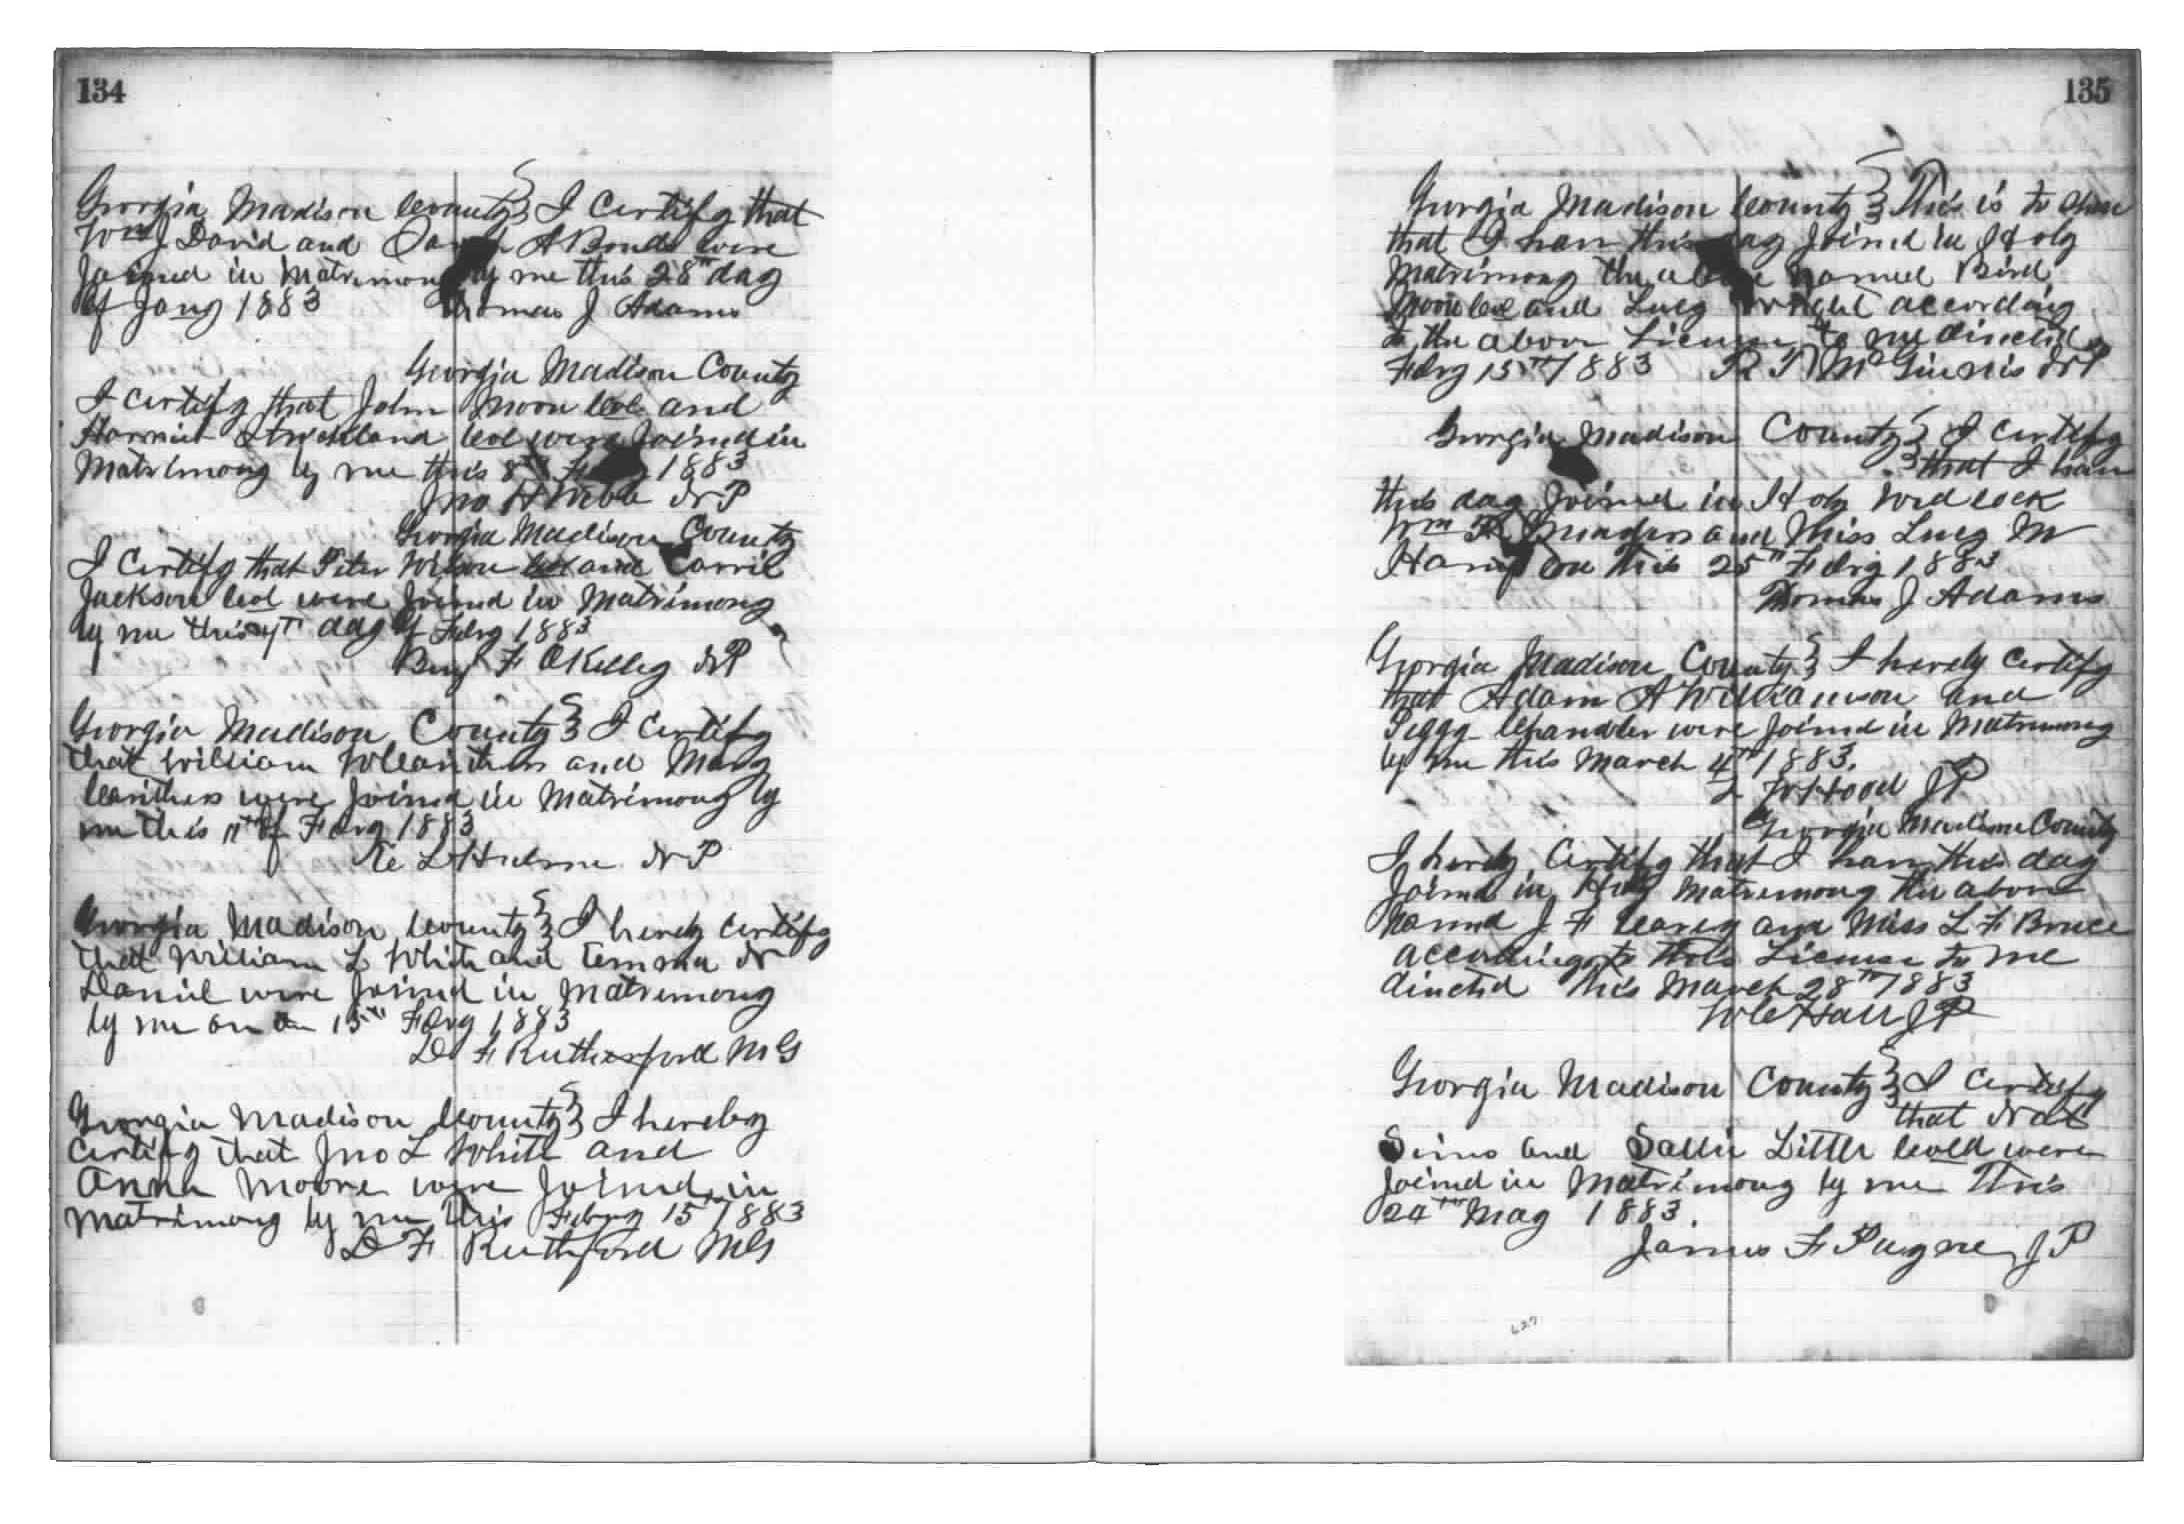 134
Georgia Madison County I Certify that
Wm J David and A Bonds were
Joined in Matrimony by me this 28th day
of Jany 1883 Thomas J Adams
Georgia Madison County
I Certify that John Moon Col and
Harriet Strickland Col were Joined in
Matrimony by me this 8th 1883
Jno H NP
Georgia Madison County
I Certify that Peter Wilson Col and Carrie
Jackson Col were Joined in Matrimony
by me this 4th day of Febry 1883
Benj F OKelley NP
Georgia Madison County I Certify
that William and Mary
Carithers were Joined in Matrimony by
me this 11th of Febry 1883
L NP
Georgia Madison County I hereby Certify
that William L White and Emma N
Daniel were Joined in Matrimony
by me on 15th Febry 1883
D F Rutherford MG
Georgia Madison County I hereby
Certify that Jno L White and
Anna Moore were Joined in
Matrimony by me this Febry 15th 1883
D F Ruthford MG
135
Georgia Madison County This is to
that I have this day Joined in Holy
Matrimony the above named Bird
Moon Col and Lucy Wright according
to the above License to me directed
Febry 15th 1883 McGinnis NP
Georgia Madison County I Certify
that I have
this day Joined in Holy Wedlock
Wm and Miss Lucy M
on this 25th Febry 1883
Thomas J Adams
Georgia Madison County I hereby Certify
that Adam A Williamson and
Peggy Chandler were Joined in Matrimony
by me this March 4th 1883.
Hood JP
Georgia Madison County
I hereby Certify that I have this day
Joined in Holy Matrimony the above
named J F and Miss L F Bruce
according to this License to me
directed this March 28th 1883
W C Hall JP
Georgia Madison County I Certify
that Nat
Sims and Sallie Little Cold were
Joined in Matrimony by me This
24th May 1883.
James F Payne JP
627